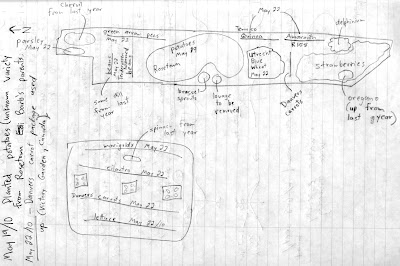 Chervil
from last year
parsley
May 22
N
green arrow peas
May 22
beans
May 22
May 22
Tomico
Quinoa
Amaranth
R105
delphinium
potatoes
May 19
Rosetum
Utrecht
Blue
Wheat
May 22
Strawberries
some dill
from last
year
brussel
sprouts
to be
removed
Danvers
carrots
oregano
(up from
last year)
spinach from last
marigolds May 22
cilantro May 22
Danvers carrots May 22
lettuce May 22/10
May 19/10 Planted potatoes (unknown variety
from Rosetum Barb's parents.
May 22/10 - Danvers carrot package used
up (Victory Garden,